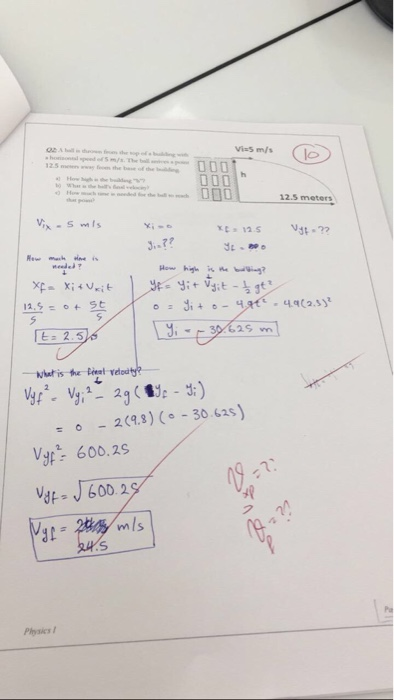 Q2: A ball is thrown from the top of a building with
a horizontal speed of 5 m/s. The ball arrives a point
12.5 meters away from the base of the building.
a) How high is the building "h"?
b) What is the ball's final velocity?
c) How much time is needed for the ball to reach
that point?
Vi=5 m/s
10
h
12.5 meters
Vix = 5 m/s
xi = 0
xf = 12.5
Vyf = ??
yi = ??
yf = 0
How much time is
needed?
How high is the building?
xf = xi + Vxit
yf = yi + Vyit - 1/2 gt²
12.5/5 = 0 + 5t/5
0 = yi + 0 - 4.9t² = 4.9(2.5)²
t = 2.5 s
yi = 30.625 m
What is the final velocity?
Vyf² = Vyi² - 2g (yf - yi)
= 0 - 2(9.8)(0 - 30.625)
Vyf² = 600.25
Vyf = √600.25
Vyf = m/s
24.5
= ??
= ??
Physics I